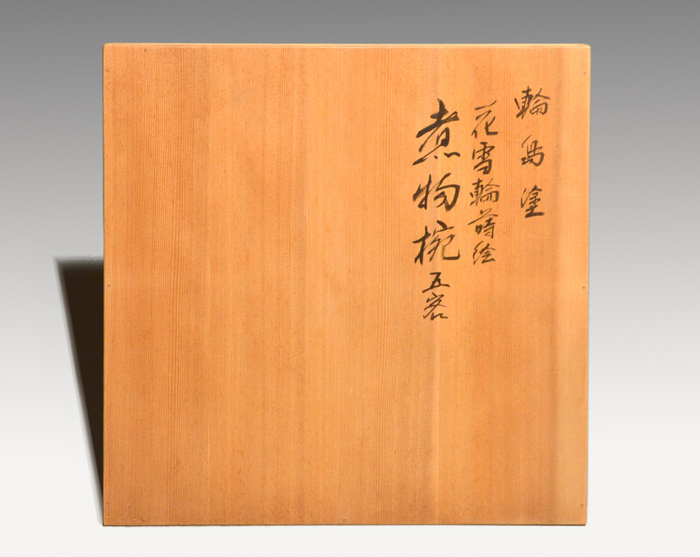 輪島塗
花雪輪蒔絵
煮物椀 五客